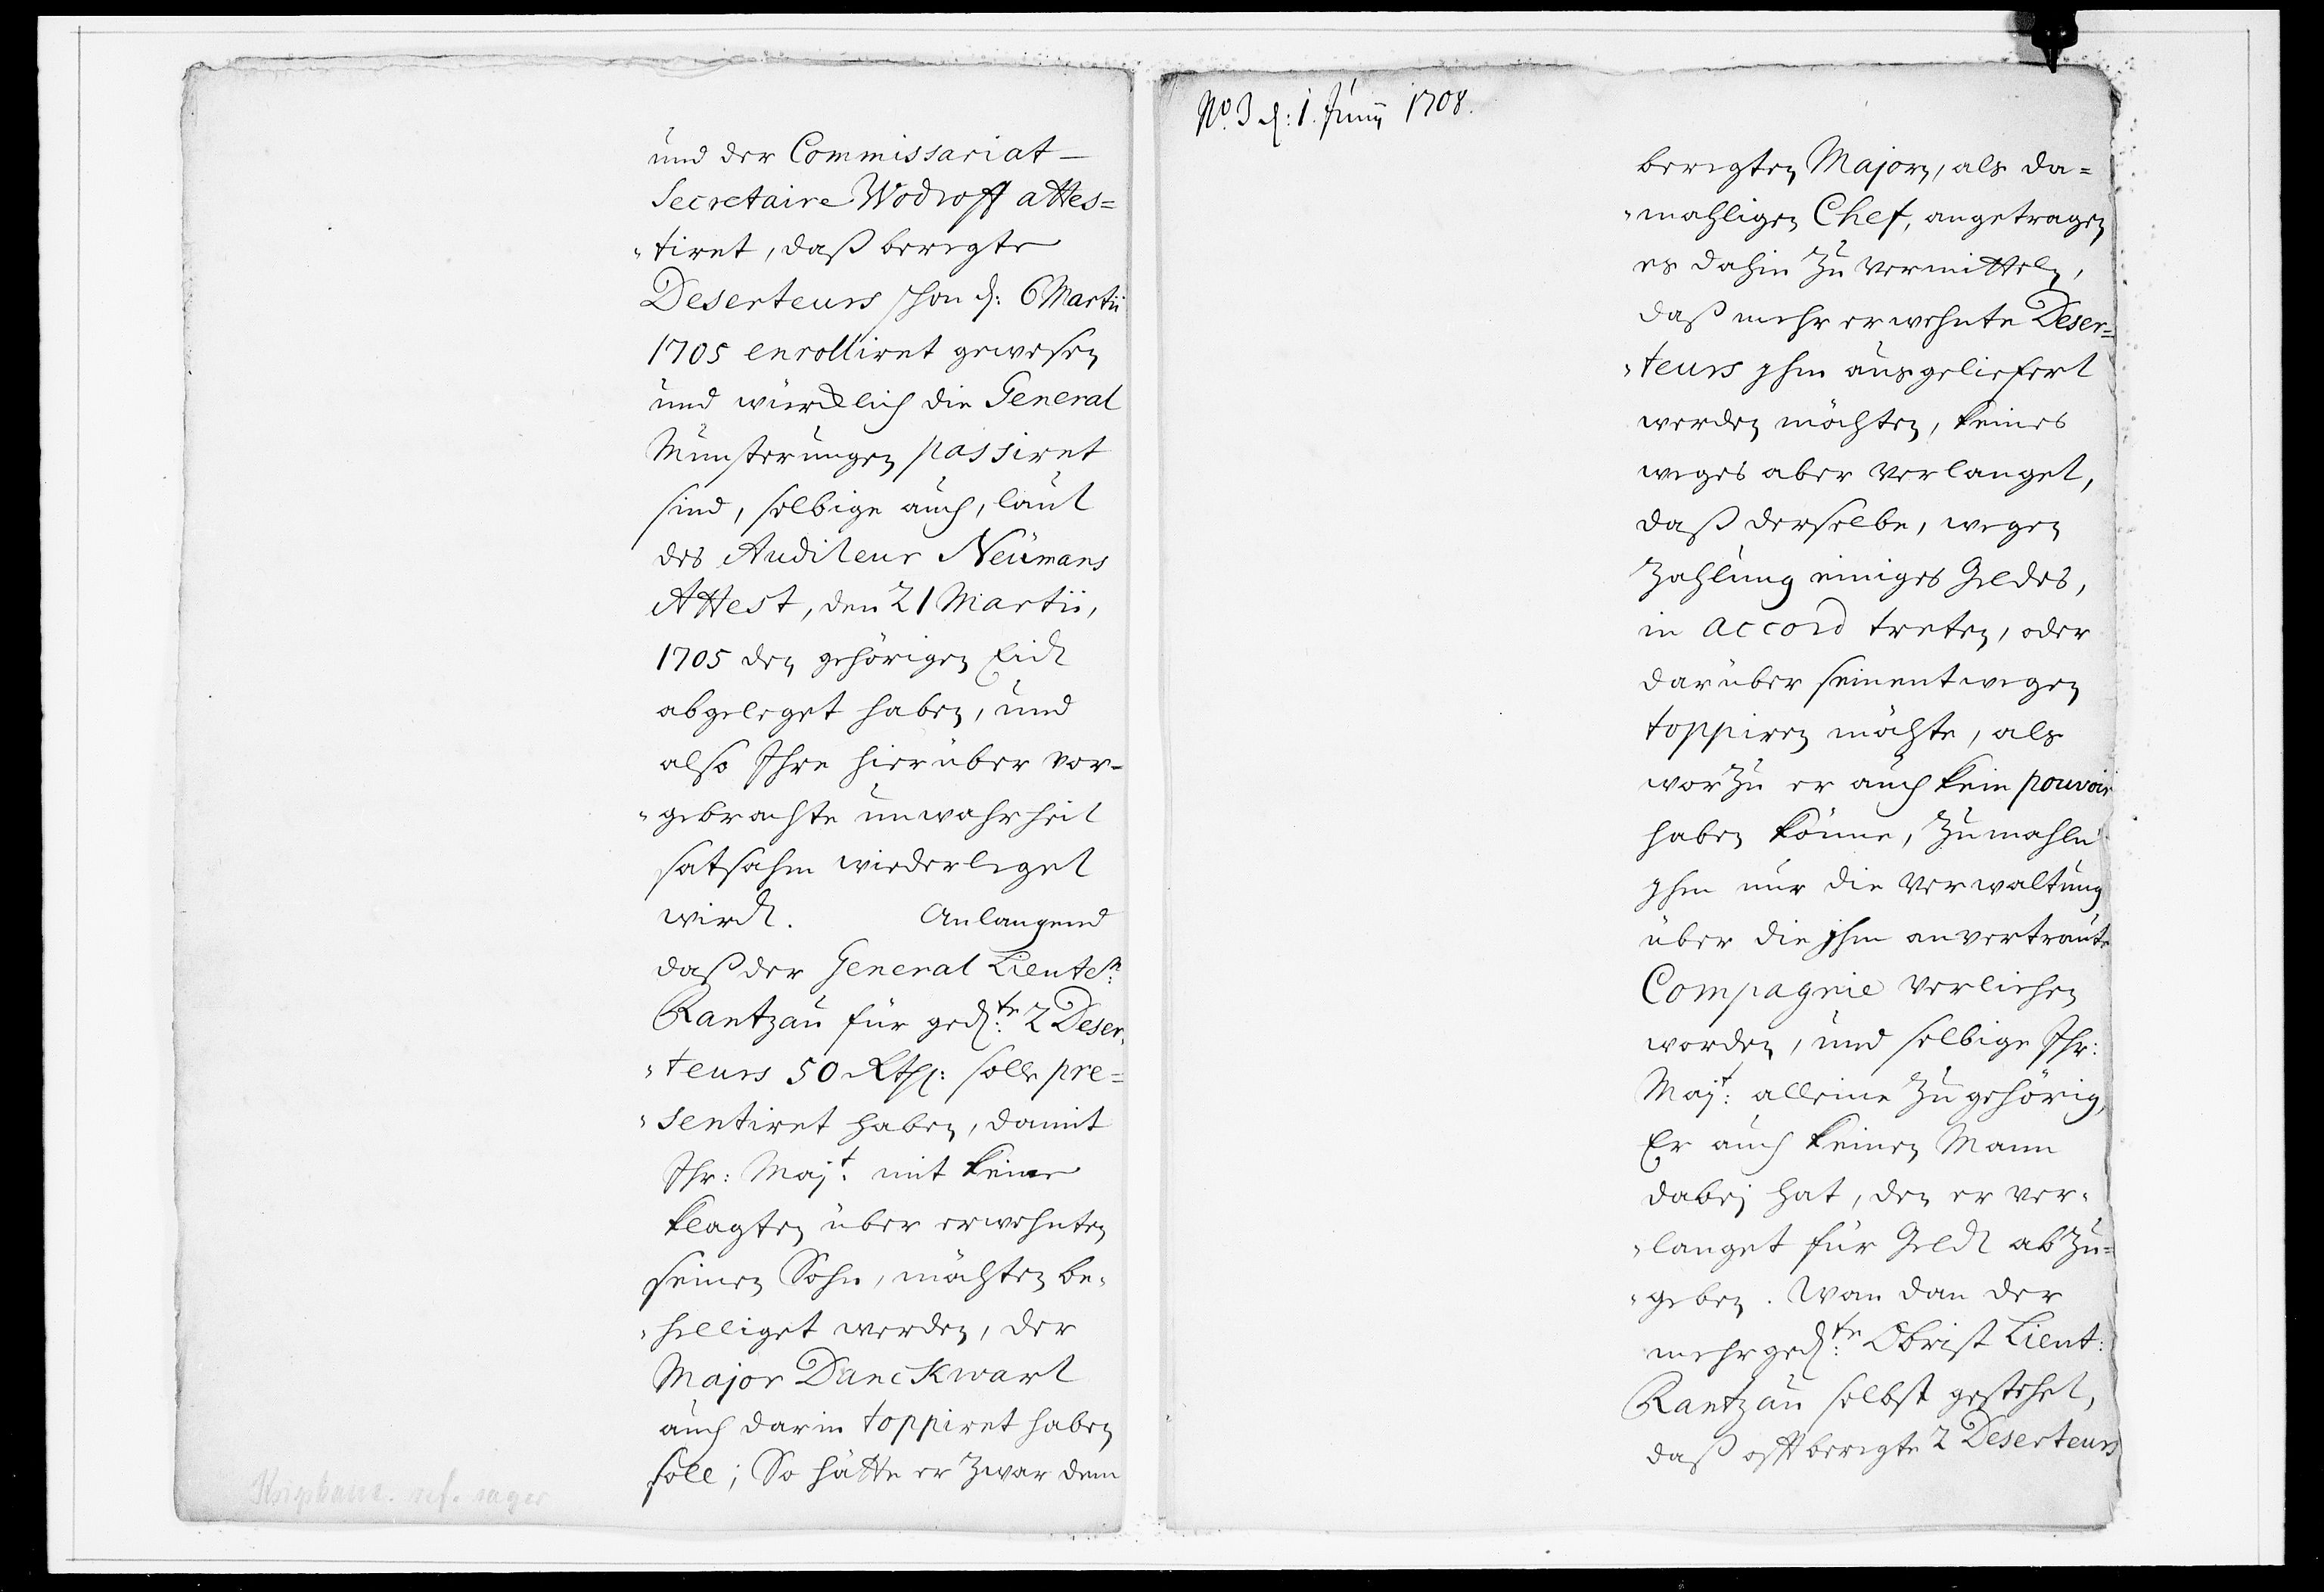 und der Commissariat-
Secretaire Wodroff attes=
"tiret, daß beregte
Deserteurs schon d: 6 Martii
1705 enrolliret gewesen
und würcklich die General
Munsterungen passiret
sind, selbige auch, laut
des Auditeur Neümans
Attest, den 21 Martii,
1705 den gehörigen Eidt
abgeleget haben, und
also Ihre hierüber vor-
"gebrachte unwahrheit
satsahm wiederleget
wirdt. Anlangend
daß der General Lieuten:
Rantzau für ged:te 2 Deser,
"teurs 50 Rthl: solle pre=
"sentiret haben, damit
Ihr: Majt: mit keine
klagten über erwehnten
seinen Sohn, möchten be,
"helliget werden, der
Major Danckwart
auch darin toppiret haben
soll; So hätte er zwar dem
Knipbaue. ref. sager
No. 3 d: 1. Junij 1708.
beregten Majorn, als da=
"mahligen Chef, angetragen
es dahin zu vermitteln,
daß mehr erwehnte Deser=
"teurs yhm ausgeliefert
werden möchten, keines
weges aber verlanget,
daß derselbe, wegen
Zahlung einiges Geldes,
in accord treten, oder
darüber seinentwegen
toppiren möchte, als
worzu er auch kein pouvoir
haben könne, zumahln
yhm nur die Verwaltung
über die yhm anvertraute
Compagnie verliehen
worden, und selbige Ihr:
Majt: alleine zugehörig,
Er auch keinen Mann
dabej hat, den er ver,
"langet für Geldt abzu=
"geben. Wan dan der
mehrged:te Obrist Lieut:
Rantzau selbst gestehet,
daß offt beregte 2 Deserteurs